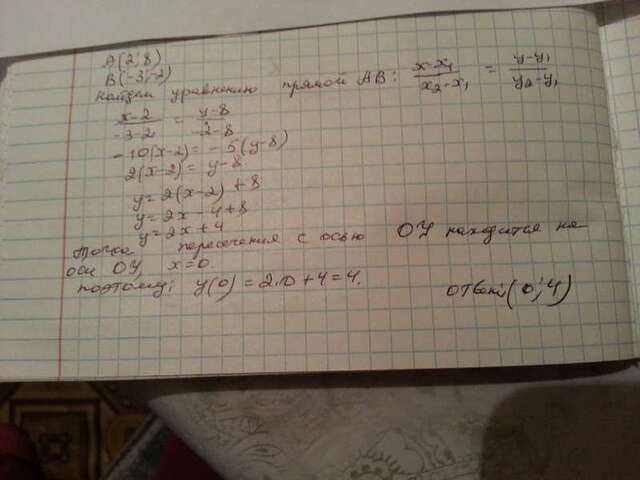 A(2;8)
B(-3;-2)
найдем уравнению прямой AB: (x-x₁)/(x₂-x₁) = (y-y₁)/(y₂-y₁)
(x-2)/(-3-2) = (y-8)/(-2-8)
-10(x-2)=-5(y-8)
2(x-2)=y-8
y=2(x-2)+8
y=2x-4+8
y=2x+4
точка пересечения с осью ОУ находится на
оси ОУ, x=0.
поэтому: y(0)=2.0+4=4.
ответ:(0;4)